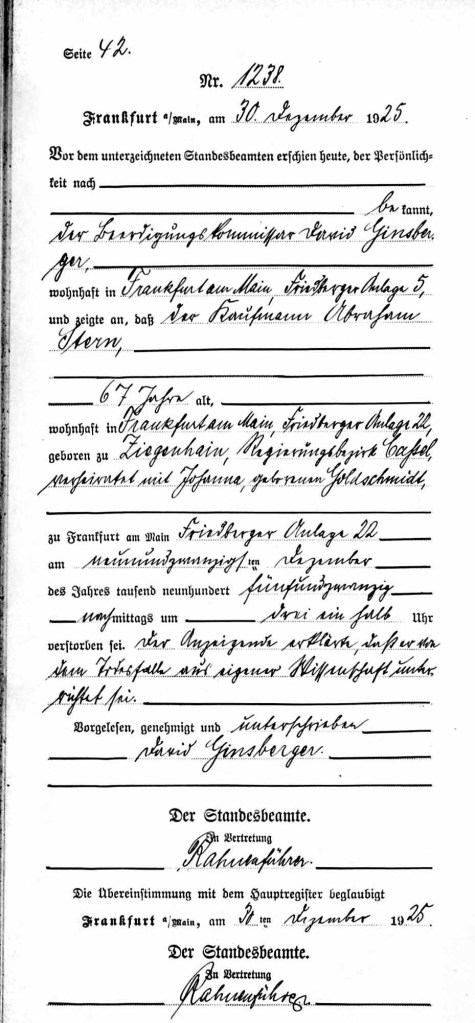 Seite 42.
Nr. 1238.
Frankfurt a/Main, am 30. Dezember 1925.
Vor dem unterzeichneten Standesbeamten erschien heute, der Persönlich-
keit nach
bekannt,
der Beerdigungskommissar David Ginsber-
ger,
wohnhaft in Frankfurt am Main, Friedberger Anlage 5,
und zeigte an, daß der Kaufmann Abraham
Stern,
67 Jahre alt,
wohnhaft in Frankfurt am Main, Friedberger Anlage 22,
geboren zu Ziegenhain, Regierungsbezirk Cassel,
verheiratet mit Johanna, geborenen Goldschmidt,
zu Frankfurt am Main Friedberger Anlage 22
am neunundzwanzigsten Dezember
des Jahres tausend neunhundert fünfundzwanzig
nachmittags um drei ein halb Uhr
verstorben sei. Der Anzeigende erklärte, daß er von
dem Todesfalle aus eigener Wissenschaft unter-
richtet sei.
Vorgelesen, genehmigt und unterschrieben
David Ginsberger.
Der Standesbeamte.
In Vertretung
Rahnenführer.
Die Übereinstimmung mit dem Hauptregister beglaubigt
Frankfurt a/Main, am 30.ten Dezember 1925.
Der Standesbeamte.
In Vertretung
Rahnenführer